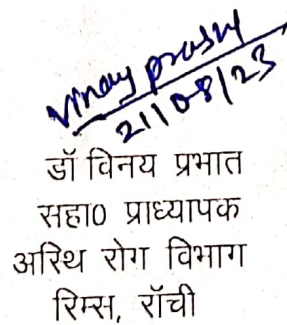 Vinay prabhat
21/08/23
डॉ विनय प्रभात
सहा0 प्राध्यापक
अस्थि रोग विभाग
रिम्स, राँची